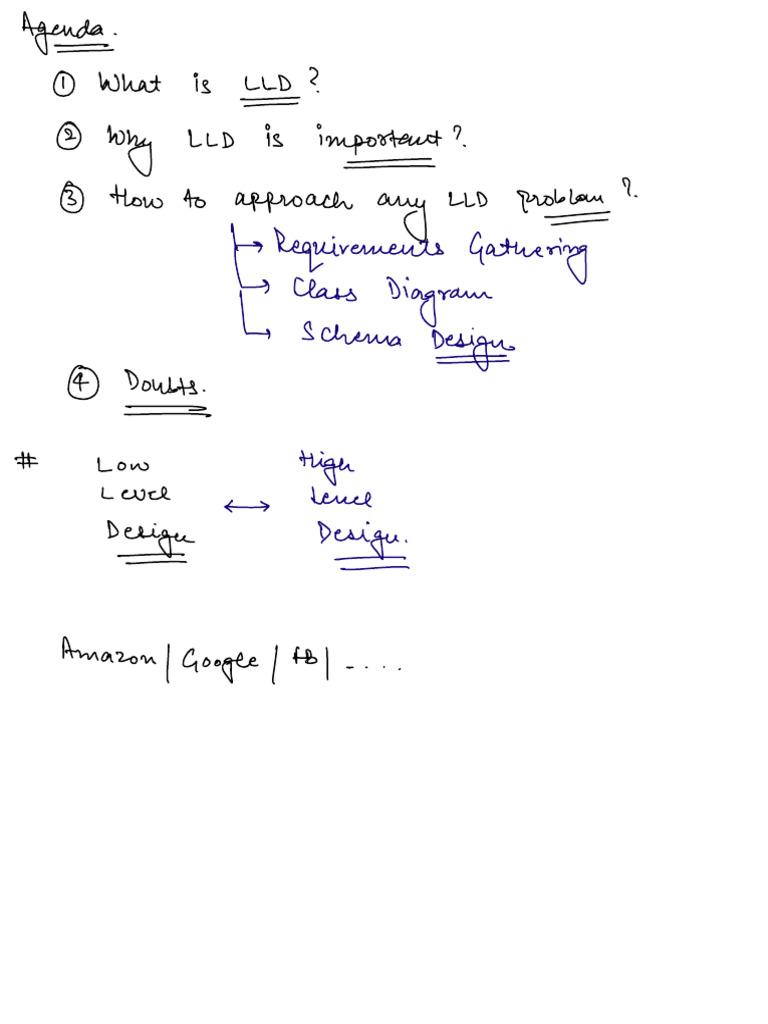 Agenda.
① What is LLD?
② Why LLD is important?
③ How to approach any LLD problem?
→ Requirements Gathering
→ Class Diagram
→ Schema Design.
④ Doubts.
# Low High
Level ↔ Level
Design Design.
Amazon | Google | FB | .....